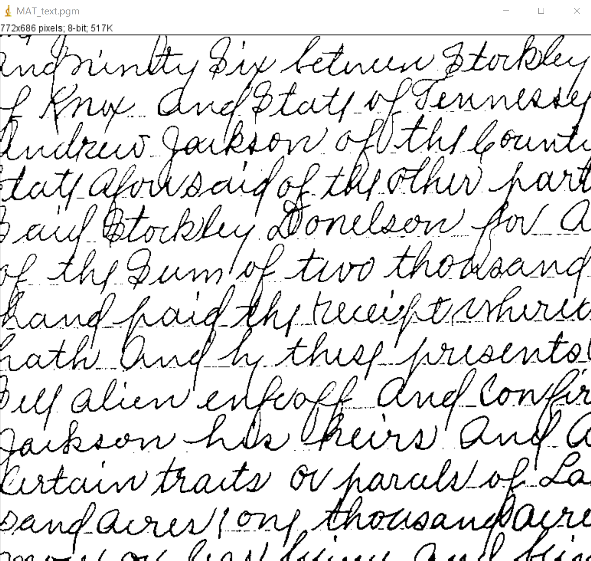 MAT_text.pgm
772x686 pixels; 8-bit; 517K
and ninty Six between Stockley
of Knox and State of Tennessey
Andrew Jackson of the Count
tate aforesaid of the other part
Said Stockley Donelson for a
of the Sum of two thousand
hand paid the receipt where
hath and by these presents
Sell alien enfeoff and Confir
Jackson his heirs and a
Certain traits or parcels of La
sand acres one thousand acre
more or less being and bein